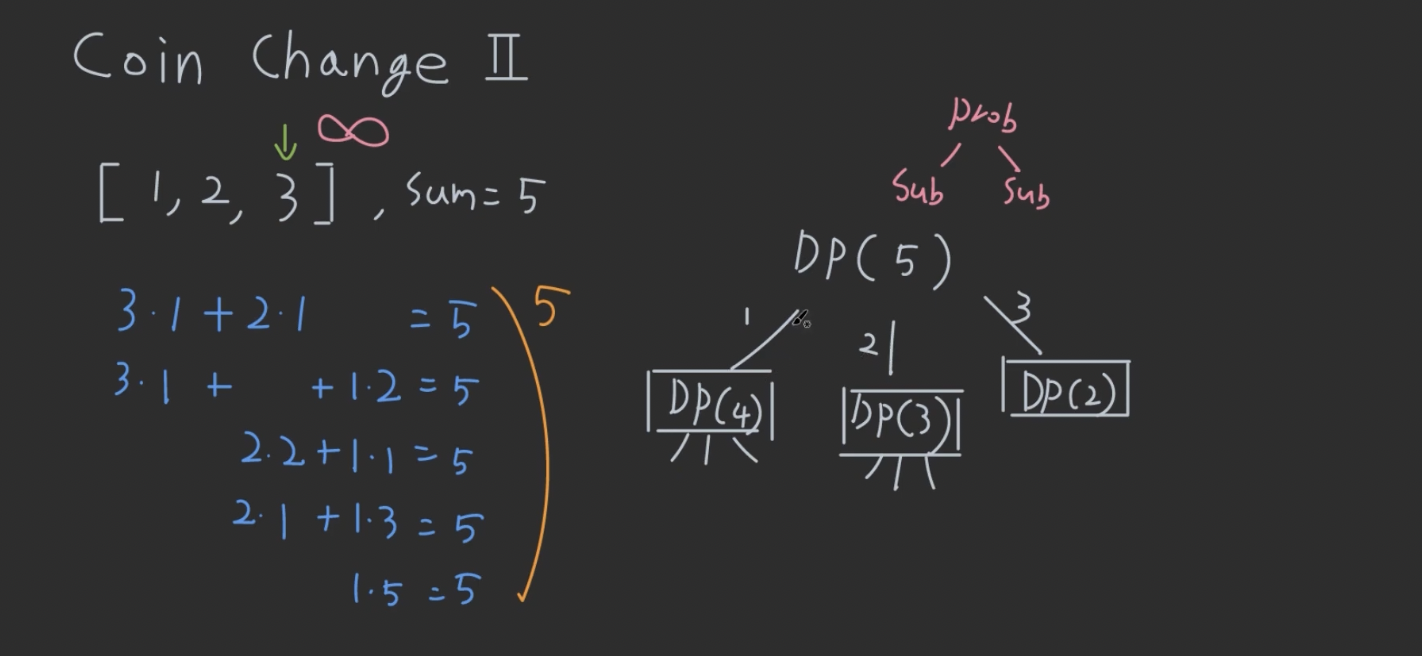 Coin Change II
∞
[ 1, 2, 3 ] , Sum = 5
3·1 + 2·1 = 5
3·1 + + 1·2 = 5
2·2 + 1·1 = 5
2·1 + 1·3 = 5
1·5 = 5
5
Prob
Sub Sub
DP(5)
1 2 3
DP(4) DP(3) DP(2)